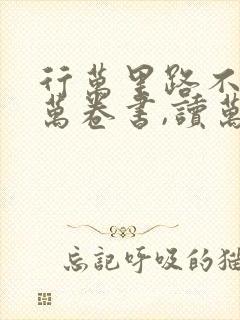 行萬里路不
萬卷書,讀萬
忘記呼吸的猫